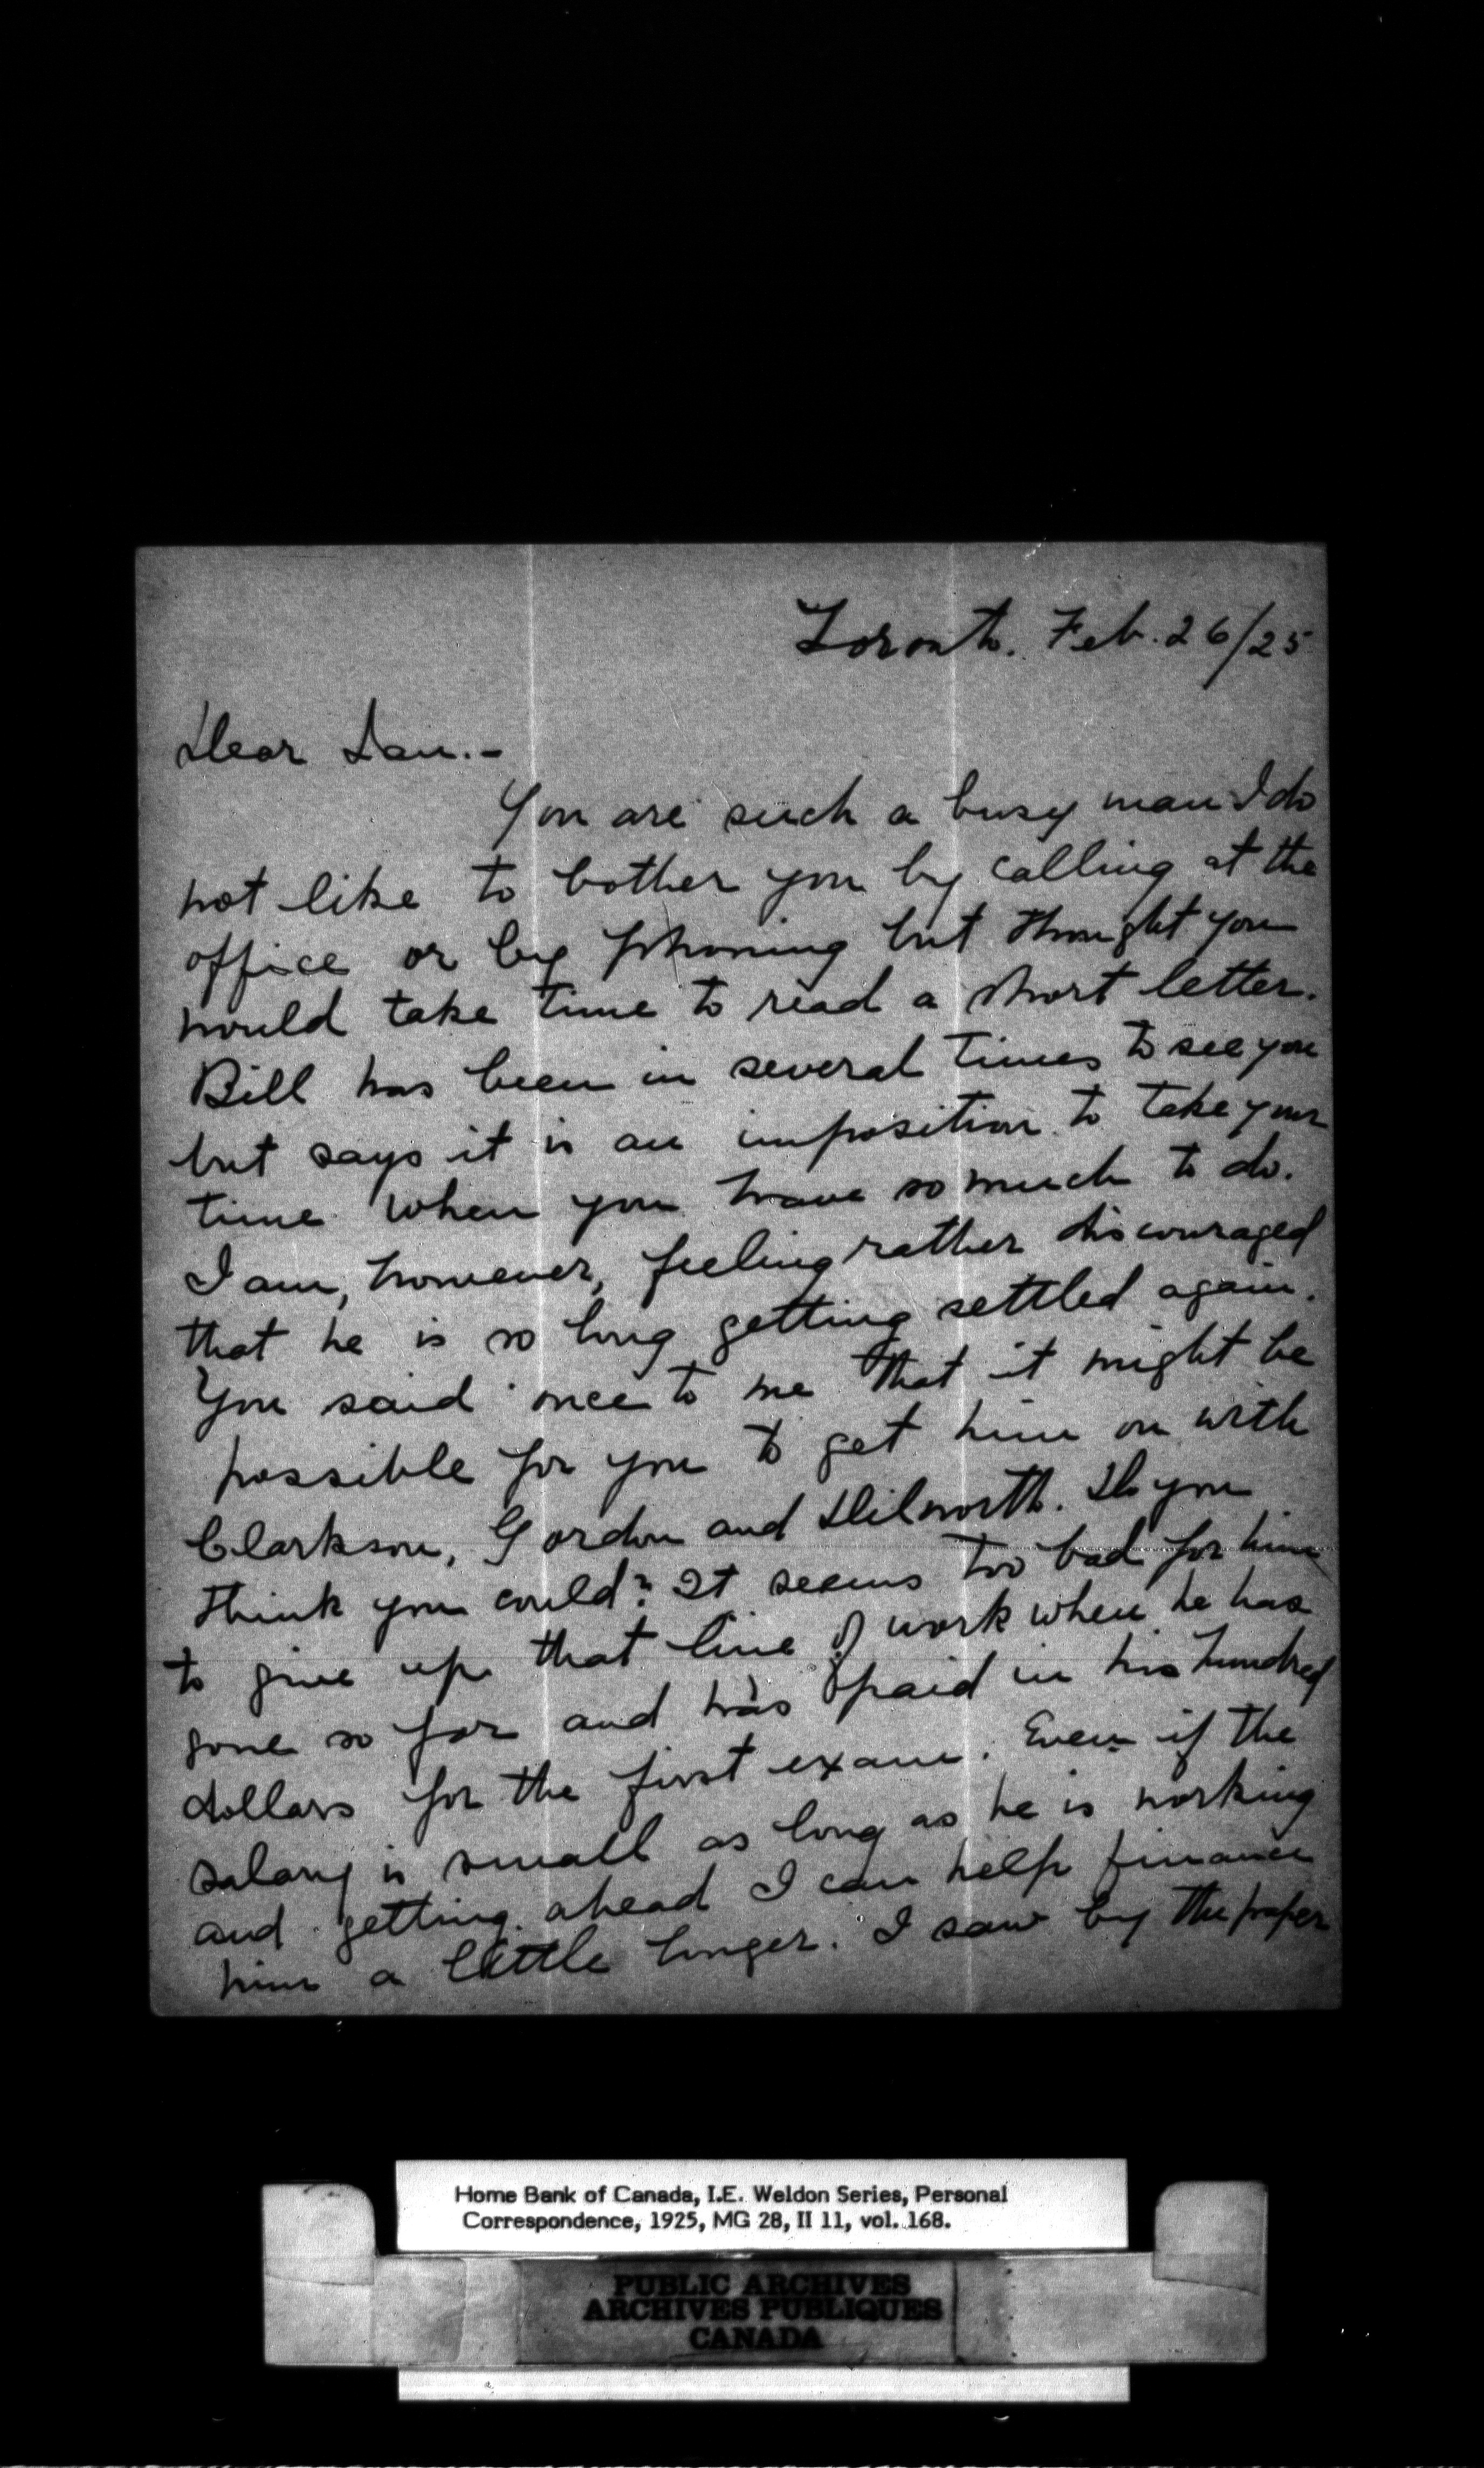 Toronto. Feb. 26/25
Dear Ian.-
You are such a busy man I do
not like to bother you by calling at the
office or by phoning but thought you
would take time to read a short letter.
Bill has been in several times to see you
but says it is an imposition to take your
time when you have so much to do.
I am, however, feeling rather discouraged
that he is so long getting settled again.
You said once to me that it might be
possible for you to get him on with
Clarkson, Gordon and Dilworth. Do you
think you could? It seems too bad for him
to give up that line of work when he has
gone so far and has paid in his hundred
dollars for the first exam. Even if the
salary is small as long as he is working
and getting ahead I can help finance
him a little longer. I saw by the paper
Home Bank of Canada, I.E. Weldon Series, Personal
Correspondence, 1925, MG 28, II 11, vol. 168.
PUBLIC ARCHIVES
ARCHIVES PUBLIQUES
CANADA